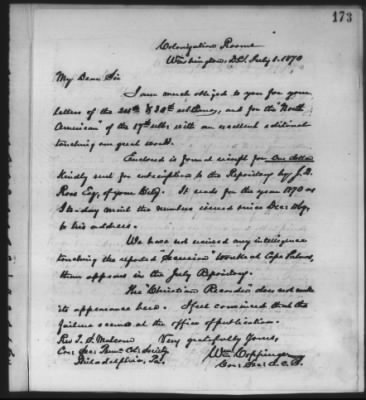 173
Colonization Rooms
Washington, D.C. July 1. 1870
My Dear Sir
I am much obliged to you for your
letters of the 24th & 30th ultimo, and for the "North
American" of the 17th ulto. with an excellent editorial
touching our great work.
Enclosed is found receipt for One dollar
kindly sent for subscription to the Repository by J. R.
Rose Esq, of your City. It ends for the year 1870 as
I to-day mail the numbers, issued since Decr. ,
to his address.
We have not received any intelligence
touching the reported "Secession" at Cape Palmas,
than appears in the July Repository.
The "Christian Recorder" does not make
its appearance here. I feel convinced that the
failure occurs at the office of publication.
Very gratefully Yours,
Rev T. S. Malcom
Cor: Sec: Penna. Col: Society
Philadelphia, Pa.
Wm. Coppinger
Cor: Sec: A.C.S.